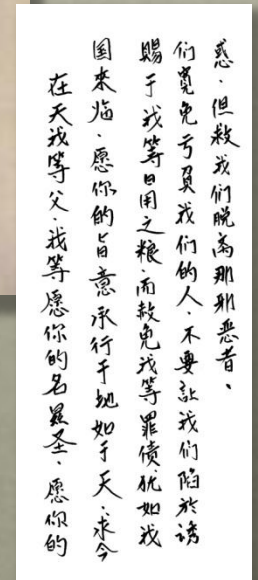 在天我等父.我等愿你的名显圣.愿你的
国來临.愿你的旨意承行于地如于天.求今
赐于我等日用之粮.而赦免我等罪债犹如我
们宽免亏負我们的人.不要让我们陷於诱
惑.但救我们脱离那邪恶者.